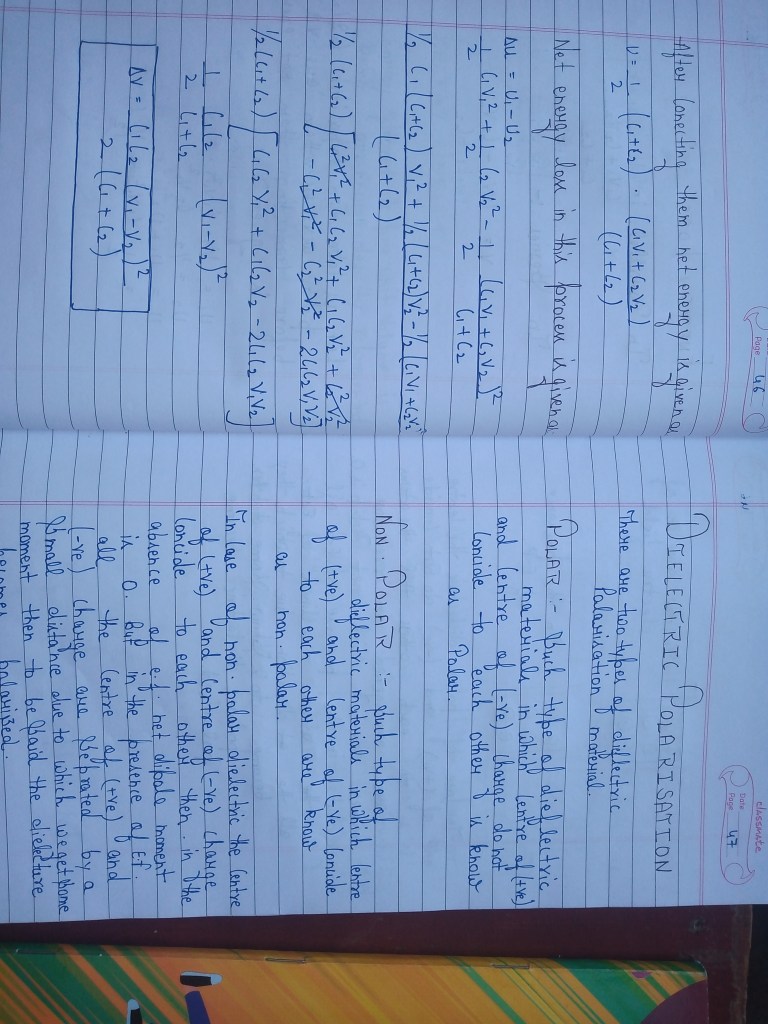 Page 46
After Conecting them net energy is given as
U = 1/2 (C₁+C₂) . (C₁V₁+C₂V₂)/(C₁+C₂)
Net energy loss in this process is given as
ΔU = U₁-U₂
1/2 C₁V₁² + 1/2 C₂V₂² - 1/2 (C₁V₁+C₂V₂)²/C₁+C₂
1/2 C₁(C₁+C₂)V₁² + 1/2(C₁+C₂)V₂² - 1/2(C₁V₁+C₂V₂)
(C₁+C₂)
1/2 (C₁+C₂) [C₁²V₁² + C₁C₂V₁² + C₁C₂V₂² + C₂²V₂²
- C₁²V₁² - C₂²V₂² - 2C₁C₂V₁V₂]
1/2 (C₁+C₂) [C₁C₂V₁² + C₁C₂V₂ - 2C₁C₂V₁V₂]
1/2 C₁C₂/C₁+C₂ (V₁-V₂)²
ΔV = C₁C₂ (V₁-V₂)²/2 (C₁+C₂)
classmate
Date
Page 47
DIELECTRIC POLARISATION
There are two types of dielectric
Polarisation material.
POLAR :- Such type of dielectric
materials in which Centre of (+ve)
and Centre of (-ve) charge do not
Concide to each other is know
as Polar.
NON. POLAR :- Such type of
dielectric materials in which Centre
of (+ve) and Centre of (-ve) Concide
to each other are know
as non. polar.
In Case of non. polar dielectric the Centre
of (+ve) and Centre of (-ve) charge
Concide to each other then. in the
absence of e.f. net dipole moment
is 0. But in the presence of E.f.
all the Centre of (+ve) and
(-ve) charge are Seprated by a
Small distance due to which we get Some
moment then to be Said the dielecture
becomes polarised.